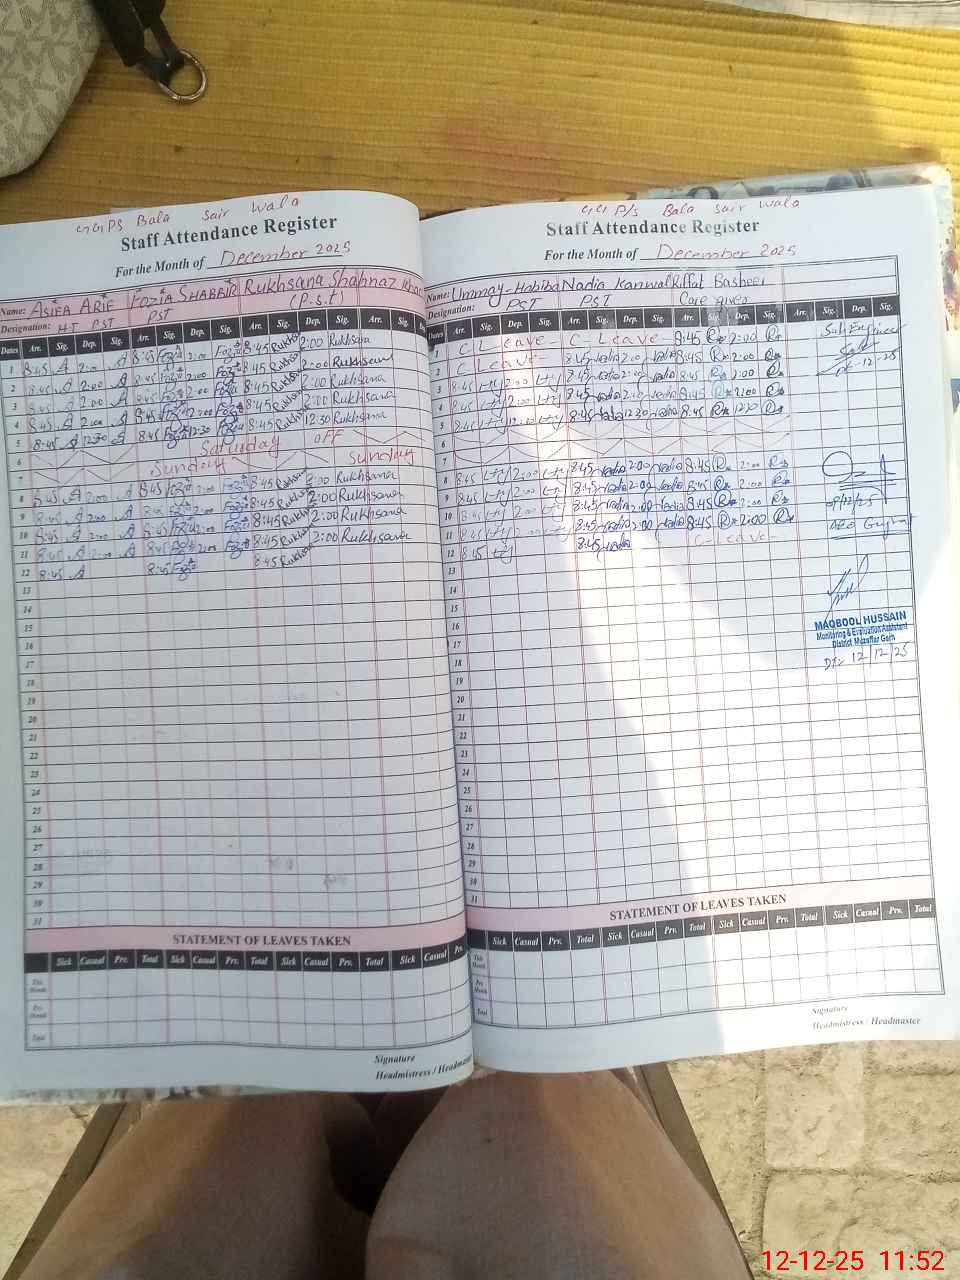 GGPS Bala Sair Wala
Staff Attendance Register
For the Month of December 2025
Name: ASIFA ARIF FOZIA SHABBIR Rukhsana Shahnaz
Designation: HT PST PST (P.S.t)
Dates Arr. Sig. Dep. Sig. Arr. Sig. Dep. Sig. Arr. Sig. Dep. Sig. Arr. Sig.
1 8:45 A 2:00 A 8:45 Fozia 2:00 Fozia 8:45 Rukhsana 2:00 Rukhsana
2 8:45 A 2:00 A 8:45 Fozia 2:00 Fozia 8:45 Rukhsana 2:00 Rukhsana
3 8:45 A 2:00 A 8:45 Fozia 2:00 Fozia 8:45 Rukhsana 2:00 Rukhsana
4 8:45 A 2:00 A 8:45 Fozia 2:00 Fozia 8:45 Rukhsana 2:00 Rukhsana
5 8:45 A 12:30 A 8:45 Fozia 12:30 Fozia 8:45 Rukhsana 12:30 Rukhsana
6 Saturday off
7 Sunday Sunday
8 8:45 A 2:00 A 8:45 Fozia 2:00 Fozia 8:45 Rukhsana 2:00 Rukhsana
9 8:45 A 2:00 A 8:45 Fozia 2:00 Fozia 8:45 Rukhsana 2:00 Rukhsana
10 8:45 A 2:00 A 8:45 Fozia 2:00 Fozia 8:45 Rukhsana 2:00 Rukhsana
11 8:45 A 2:00 A 8:45 Fozia 2:00 Fozia 8:45 Rukhsana 2:00 Rukhsana
12 8:45 A 8:45 Fozia 8:45 Rukhsana
13
14
15
16
17
18
19
20
21
22
23
24
25
26
27
28
29
30
31
STATEMENT OF LEAVES TAKEN
Sick Casual Prv. Total Sick Casual Prv. Total Sick Casual Prv. Total Sick Casual Prv.
This Month
Prv. Month
Total
Signature
Headmistress / Headmaster
GG P/S Bala Sair Wala
Staff Attendance Register
For the Month of December 2025
Name: Ummay-Habiba Nadia Kanwal Riffat Basheer
Designation: PST PST Care giver
Arr. Sig. Dep. Sig. Arr. Sig. Dep. Sig. Arr. Sig. Dep. Sig. Arr. Sig. Dep. Sig.
1 C Leave - C - Leave - 8:45 R 2:00 R
2 C Leave - 8:45 Nadia 2:00 Nadia 8:45 R 2:00 R
3 8:45 2:00 8:45 Nadia 2:00 Nadia 8:45 R 2:00 R
4 8:45 2:00 8:45 Nadia 2:00 Nadia 8:45 R 2:00 R
5 8:45 12:30 8:45 Nadia 12:30 Nadia 8:45 R 12:30 R
6
7
8 8:45 2:00 8:45 Nadia 2:00 Nadia 8:45 R 2:00 R
9 8:45 2:00 8:45 Nadia 2:00 Nadia 8:45 R 2:00 R
10 8:45 2:00 8:45 Nadia 2:00 Nadia 8:45 R 2:00 R
11 8:45 2:00 8:45 Nadia 2:00 Nadia 8:45 R 2:00 R
12 8:45 8:45 Nadia C - Leave -
13
14
15
16
MAQBOOL HUSSAIN
Monitoring & Evaluation Assistant
District Muzaffar Garh
17
Dt: 12/12/25
18
19
20
21
22
23
24
25
26
27
28
29
30
31
STATEMENT OF LEAVES TAKEN
Sick Casual Prv. Total Sick Casual Prv. Total Sick Casual Prv. Total Sick Casual Prv. Total
This Month
Prv. Month
Total
Signature
Headmistress / Headmaster
12-12-25 11:52